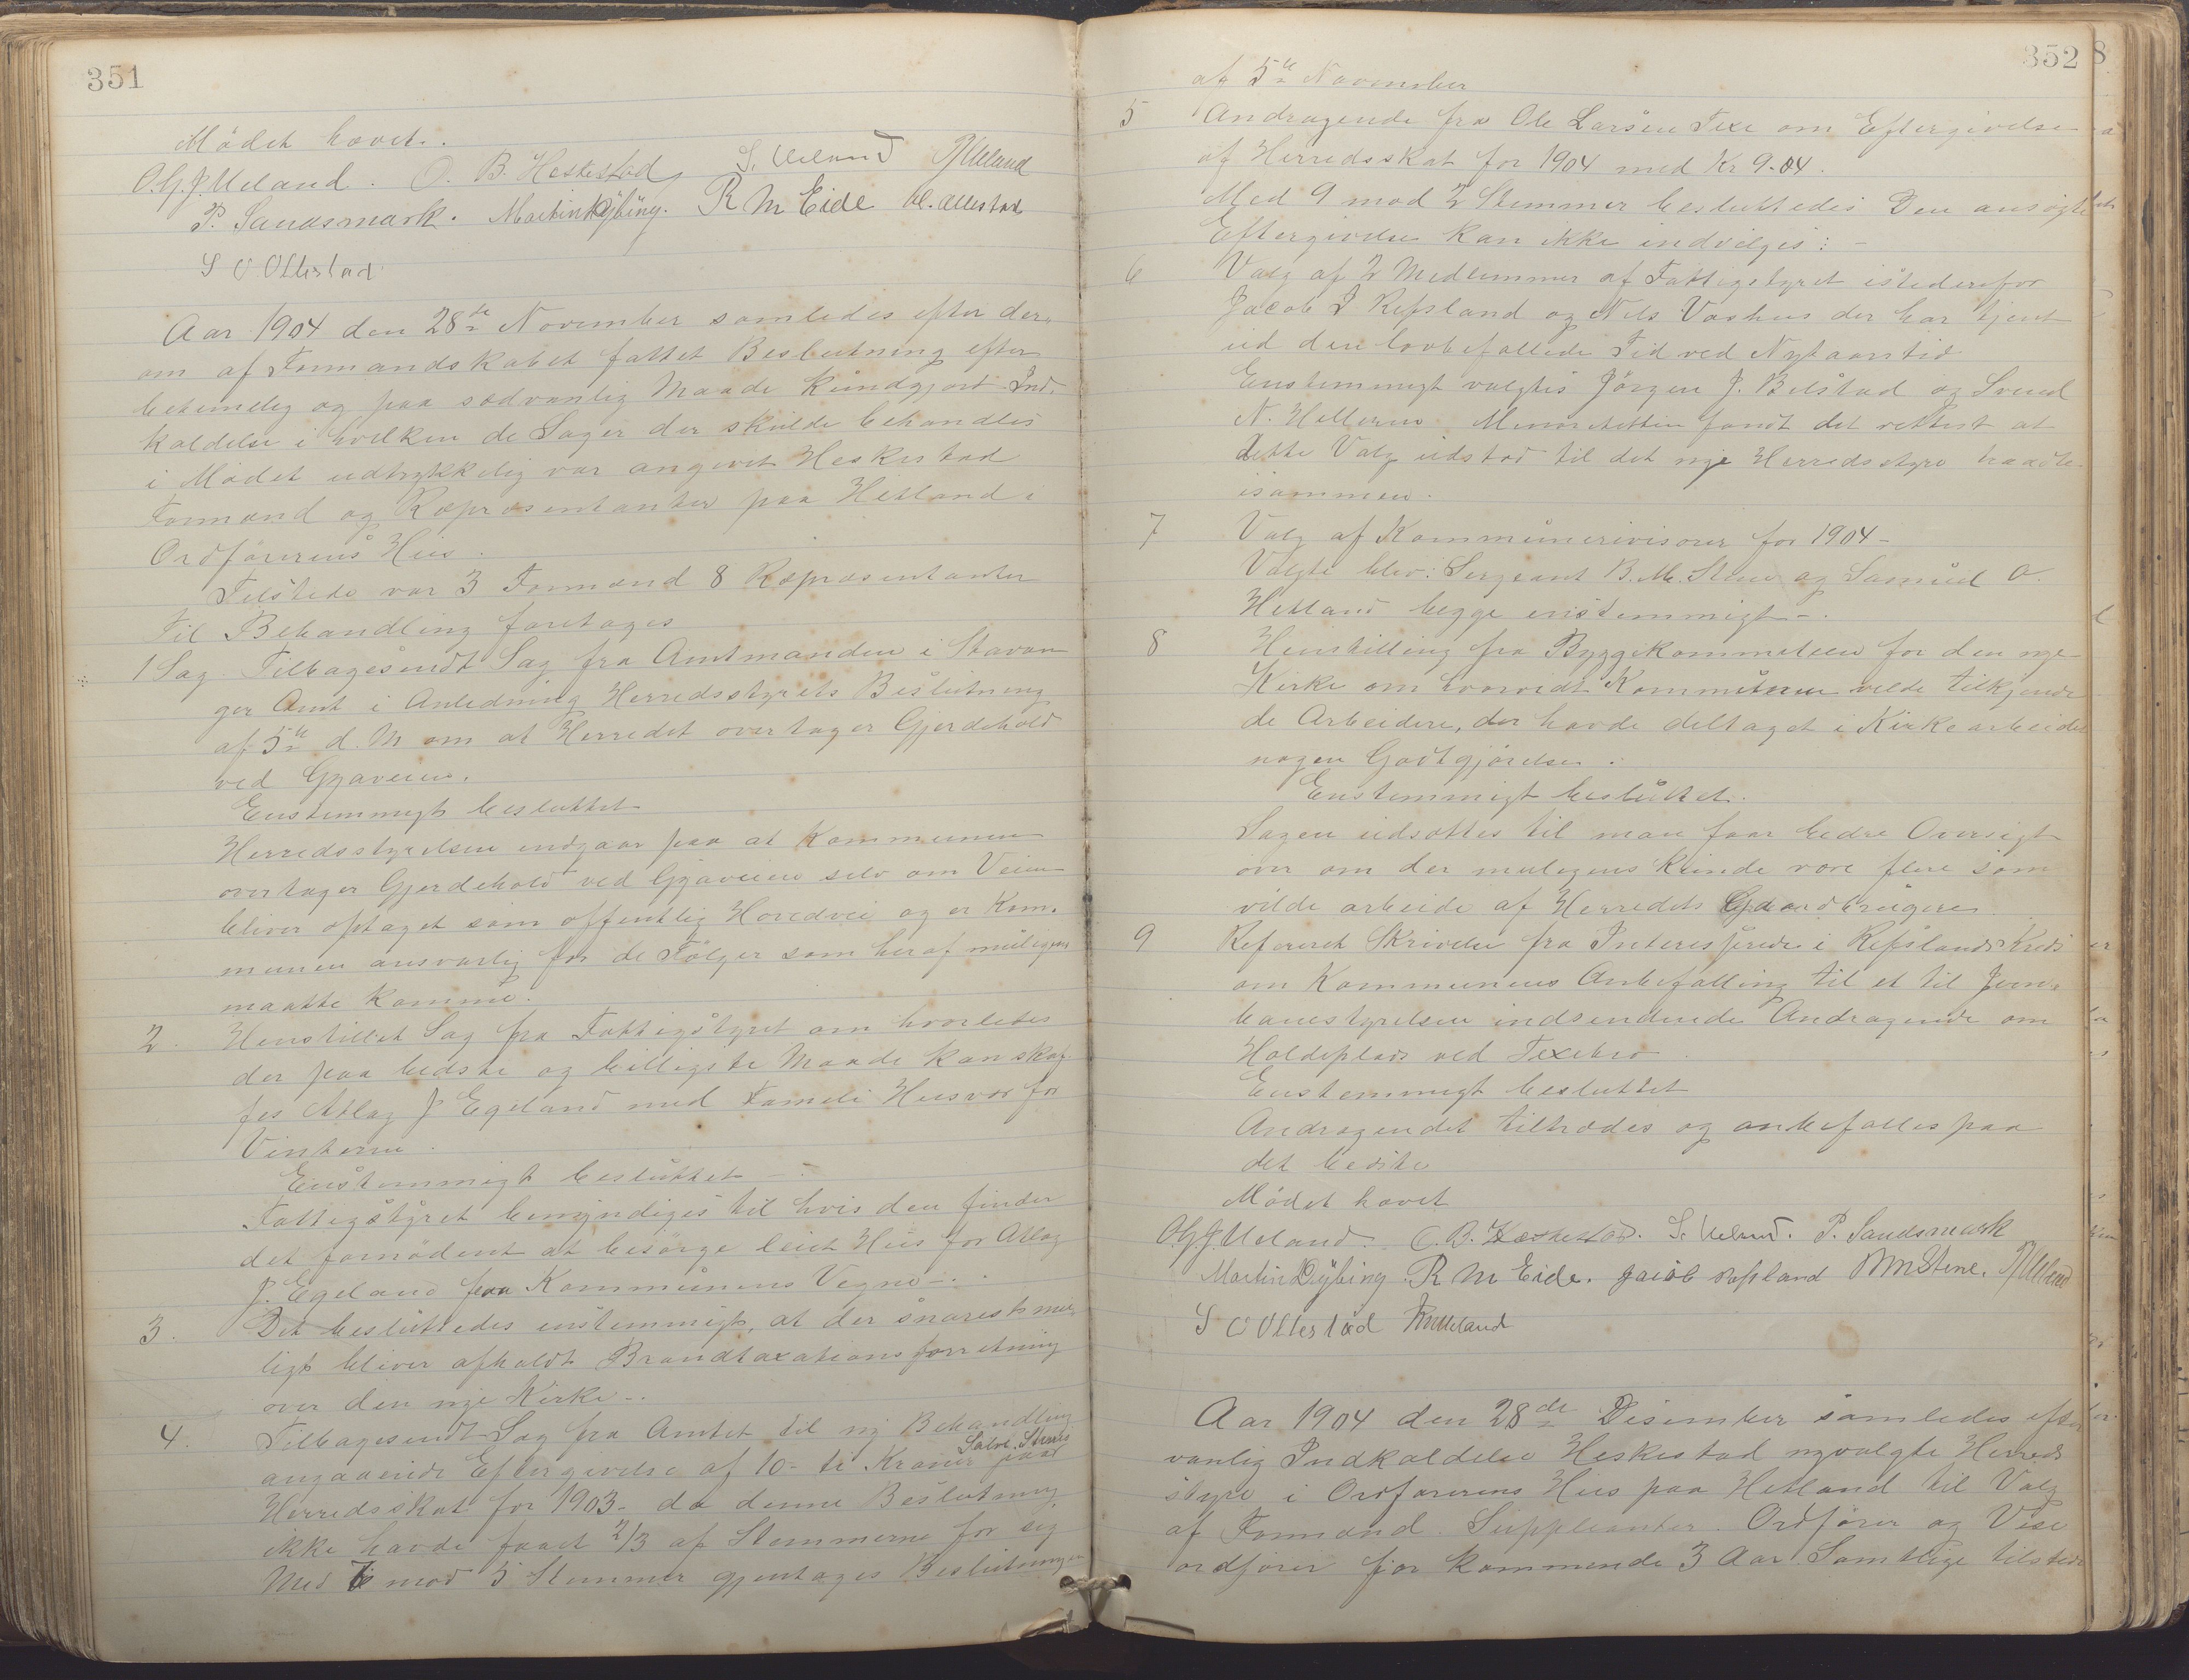 351
Mödet hævet.
O.G.J. Ueland. O. B. Heskestad S. Ueland
P. Sandsmark. Martin Dybing. R M Eide
S O Ollestad
Aar 1904 den 28de November samledes efter der¬
om af Formandskabet fattet Beslutning efter
betimelig og paa sædvanlig Maade kundgjord Ind¬
kaldelse i hvilken de Sager der skulde behandles
i Mödet udtrykkelig var angivet Heskestad
Formænd og Repræsentanter paa Hetland i
Ordförerens Hus.
Tilstede var 3 Formænd 8 Repræsentanter
Til Behandling foretoges
1 Sag Tilbagesendt Sag fra Amtmanden i Stavan
ger Amt i Anledning Herredsstyrets Beslutning
af 5te d. M om at Herredet overtager Gjerdehold
ved Gyaveien.
Enstemmigt besluttet
Herredsstyrelsen indgaar paa at Kommunen
overtager Gjerdehold ved Gyaveien selv om Veien
bliver optaget som offentlig Hovedvei og er Kom¬
munen ansvarlig for de Fölger som heraf muligens
maatte komme.
2. Henstillet Sag fra Fattigstyret om hvorledes
der paa bedste og billigste Maade kan skaf¬
fes Atlag J Egeland med Fameli Husvær for
Vinteren.
Enstemmigt besluttet –
Fattigstyret bemyndiges til hvis den finder
det fornödent at besörge leiet Hus for Atlag
J. Egeland paa Kommunens Vegne –.
3. Det besluttedes enstemmigt, at der snarest mu¬
ligt bliver afholdt Brandtaxationsforretning
over den nye Kirke –.
4. Tilbagesendt Sag fra Amtet til ny Behandling
angaaende Eftergivelse af 10 – ti Kroner paa
Herredsskat for 1903 – da denne Beslutning
ikke havde faaet 2/3 af Stemmerne for sig
Med 6 mod 5 Stemmer gjentages Beslutningen
352
af 5te November
5 Andragende fra Ole Larsen Texe om Eftergivelse
af Herredsskat for 1904 med Kr 9-04.
Med 9 mod 2 Stemmer besluttedes Den ansøgte
Eftergivelse kan ikke indvilges: –
6 Valg af 2 Medlemmer af Fattigstyret istedenfor
Jacob I Refsland og Nils Vashus der har tjent
ud den lovbefallede Tid ved Nytaarstid
Enstemmigt valgtes Jörgen J. Bilstad og Svend
N. Helleren. Minoriteten fandt det rettest at
dette Valg udstod til det nye Herredsstyre traadte
isammen.
7 Valg af Kommunerevisorer for 1904 –
Valgte blev: Sergeant B. M. Stene og Samuel O.
Hetland begge enstemmigt –.
8 Henstilling fra Byggekommiteen for den nye
Kirke om hvorvidt Kommunen vilde tilkjende
de Arbeidere, der havde deltaget i Kirkearbeidet
nogen Godtgjörelse.
Enstemmigt besluttet.
Sagen udsættes til man faar bedre Oversigt
over om der muligens kunde være flere som
vilde arbeide af Herredets Gaardbrugere
9 Refereret Skrivelse fra Interesserede i Refslands Kreds
om Kommunens Anbefalling til et til Jern¬
banestyrelsen indsendende Andragende om
Holdeplads ved Texebro.
Enstemmigt besluttet
Andragendet tiltrædes og anbefalles paa
det bedste
Mödet hævet
O.G.J. Ueland. O. B. Heskestad. S. Ueland. P. Sandsmark
Martin Dybing. R M Eide. Jacob Refsland BM Stene.
S O Ollestad
Aar 1904 den 28de Desember samledes efter
vanlig Indkaldelse Heskestad nyvalgte Herreds
styre i Ordförerens Hus paa Hetland til Valg
af Formænd. Suppleanter. Ordförer og Vise
ordförer for kommende 3 Aar. Samtlige tilstede